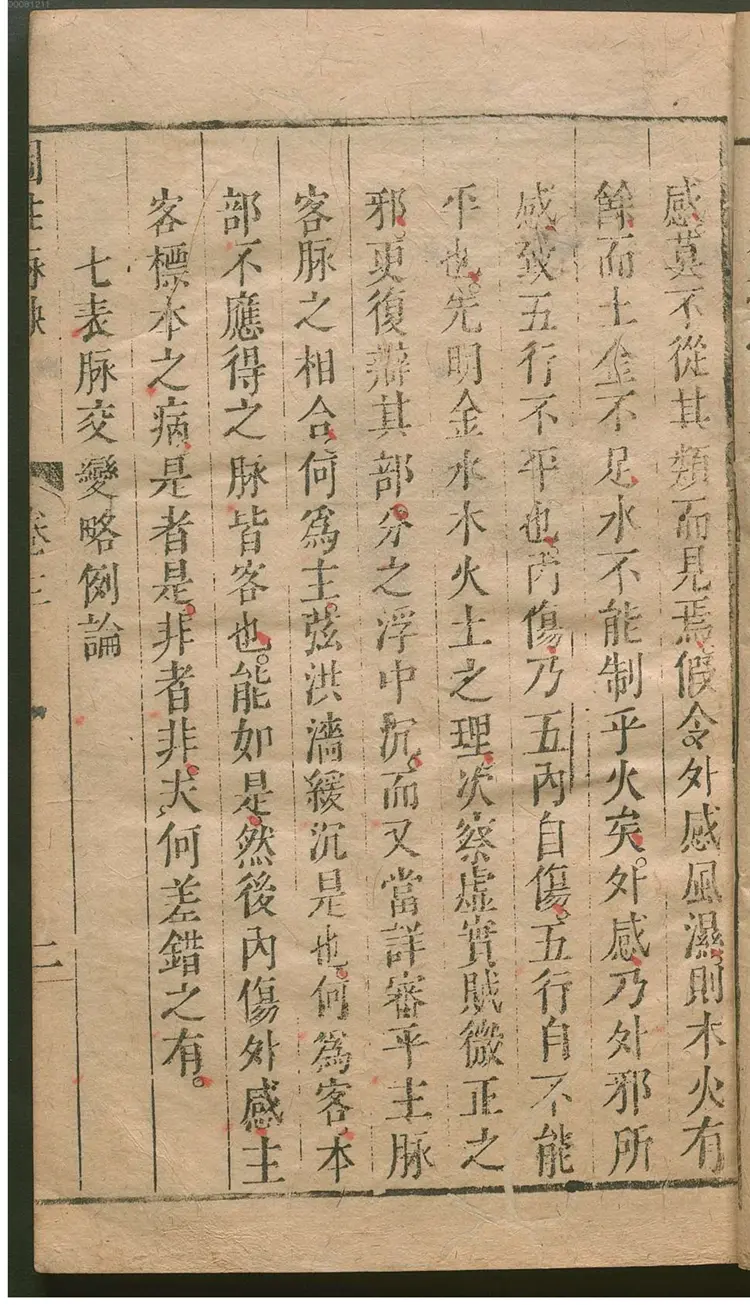 00081211
感莫不從其類而見焉假令外感風濕則木火有
餘而土金不足水不能制乎火矣外感乃外邪所
感致五行不平也內傷乃五內自傷五行自不能
平也先明金水木火土之理次察虛實賊微正之
邪更復辯其部分之浮中沉而又當詳審乎主脉
客脉之相合何爲主弦洪濇緩沉是也何爲客本
部不應得之脉皆客也能如是然後內傷外感主
客標本之病是者是非者非夫何差錯之有
七表脉交變略例論
圖註脉訣
卷三
二